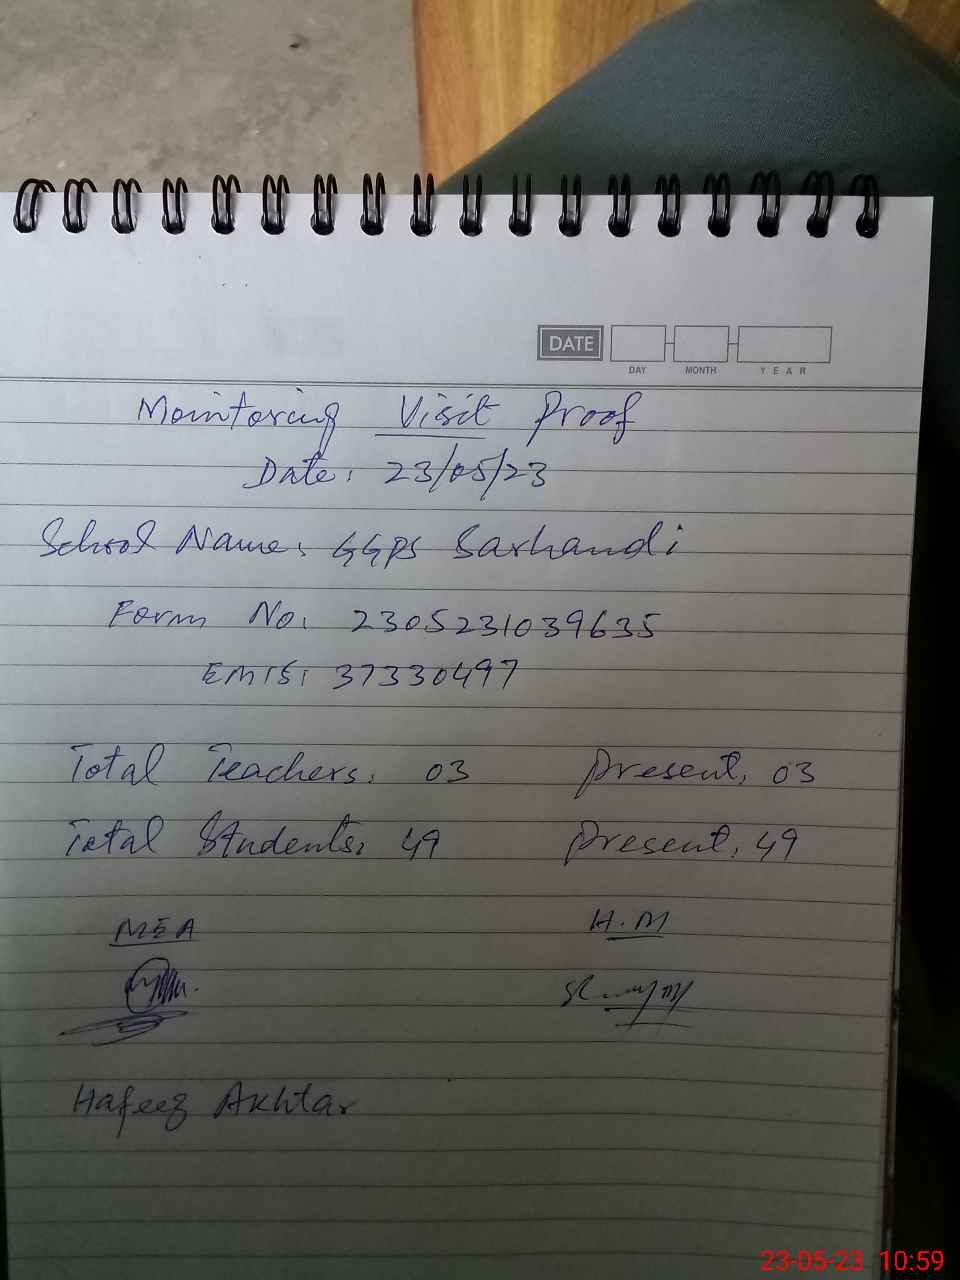 DATE
DAY MONTH YEAR
Monitoring Visit Proof
Date: 23/05/23
School Name: GGPS Sarhandi
Form No. 2305231039635
EMIS: 37330497
Total Teachers: 03 Present: 03
Total Students: 49 Present: 49
MEA H.M
Hafeez Akhtar
23-05-23 10:59